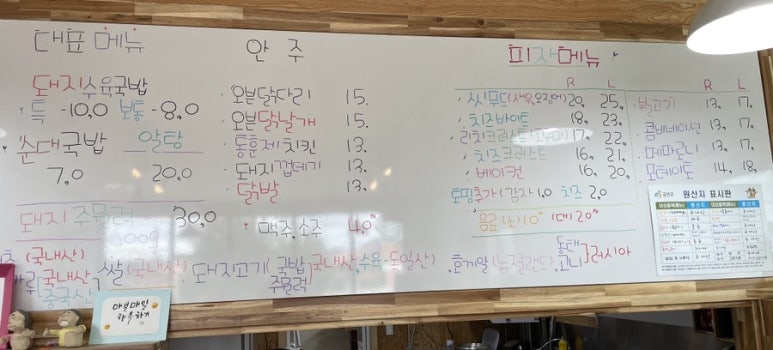 대표 메뉴
돼지수육국밥
특 -10,0 보통 -8,0
순대국밥 알탕
7,0 20,0
돼지 주물럭 30,0
00g
(국내산)
국내산
중국산
쌀(국내산), 돼지고기(국밥, 국내산, 수육-독일산)
주물럭
매일매일
안 주
· 오븐닭다리 15.
· 오븐닭날개 15.
· 통훈제치킨 13.
· 돼지껍데기 13.
· 닭발 13.
· 맥주, 소주 4.0
피자메뉴
R L
· 씨푸드(새우,오징어) 20, 25,
· 치즈바이트 18, 23,
· 리치크러스트(고구마) 17, 22,
· 치즈크러스트 16, 21,
· 베이컨 16, 20,
토핑추가 (감자) 1,0 치즈 2,0
음료 (소) 1,0 (대) 2,0
R L
· 불고기 13, 17,
· 콤비네이션 13, 17,
· 페파로니 13, 17,
· 포테이토 14, 18,
원산지 표시판
동태
고니 } 러시아
(뉴질랜드),